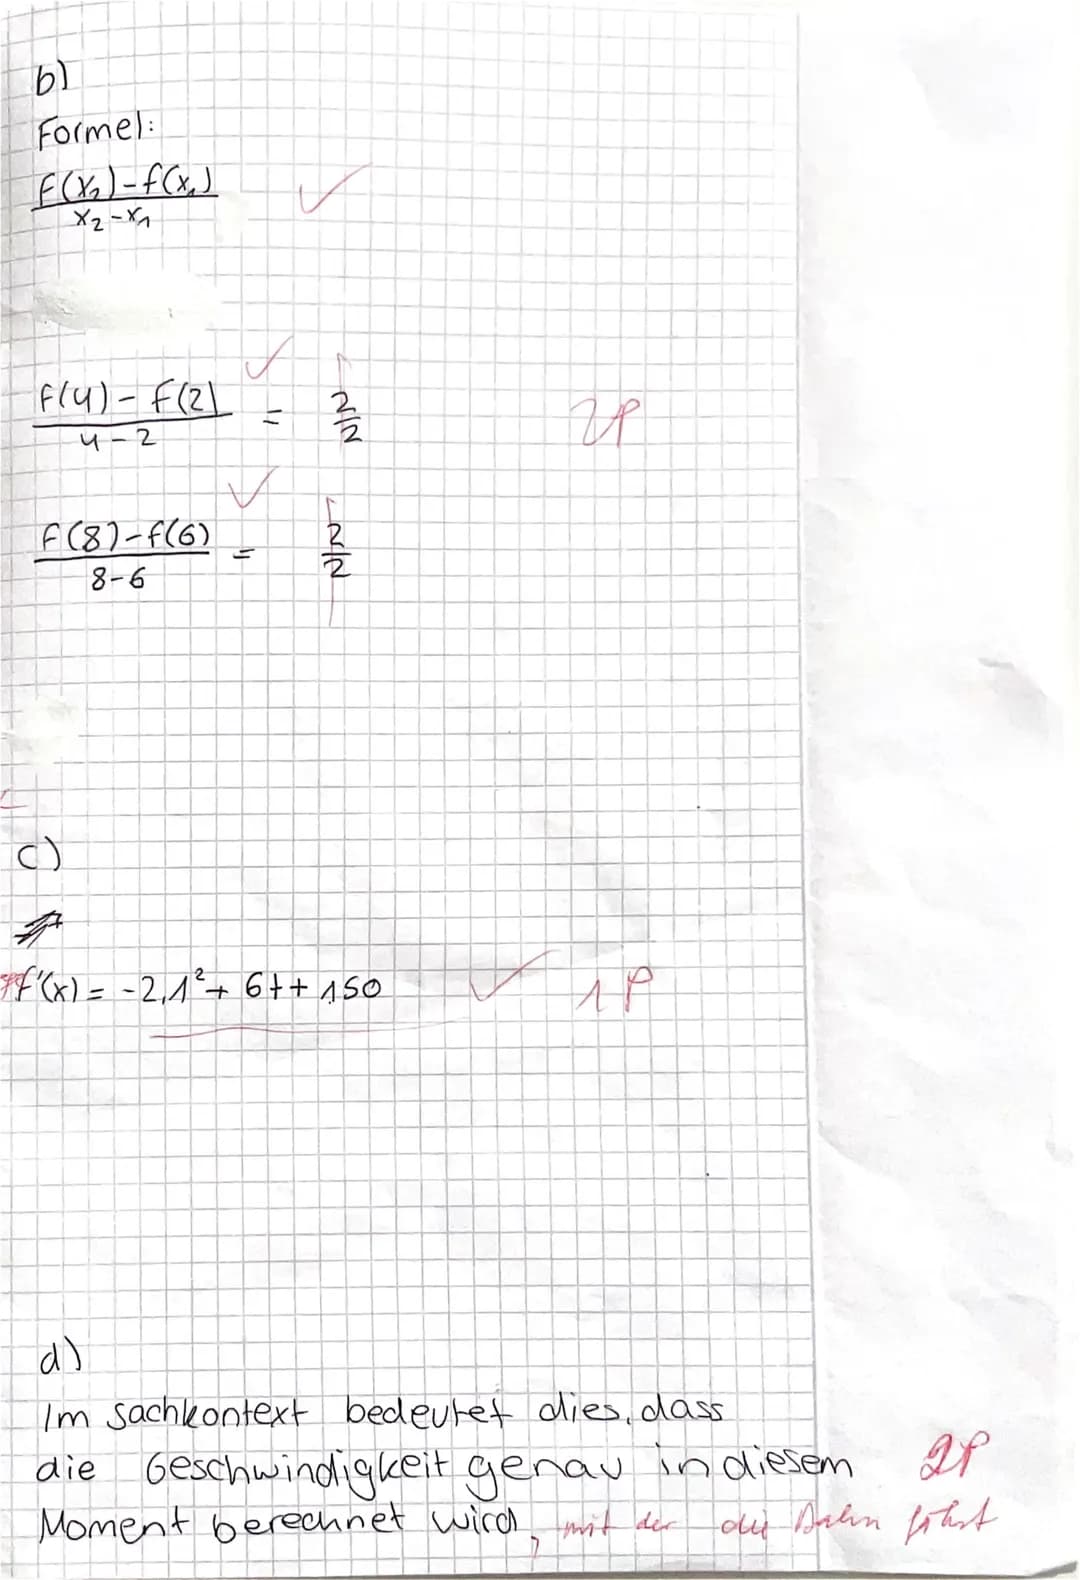 b)
Formel:
f(x₂)-f(x₁)
x₂-x₁
f(4)-f(2) = 2/2
4-2
2P
f(8)-f(6) = 2/2
8-6
c)
f'(x) = -2,1²+ 6t+ 150
1P
d)
Im sachkontext bedeutet dies, dass
die Geschwindigkeit genau in diesem 2P
Moment berechnet wird, mit der die Bahn fährt